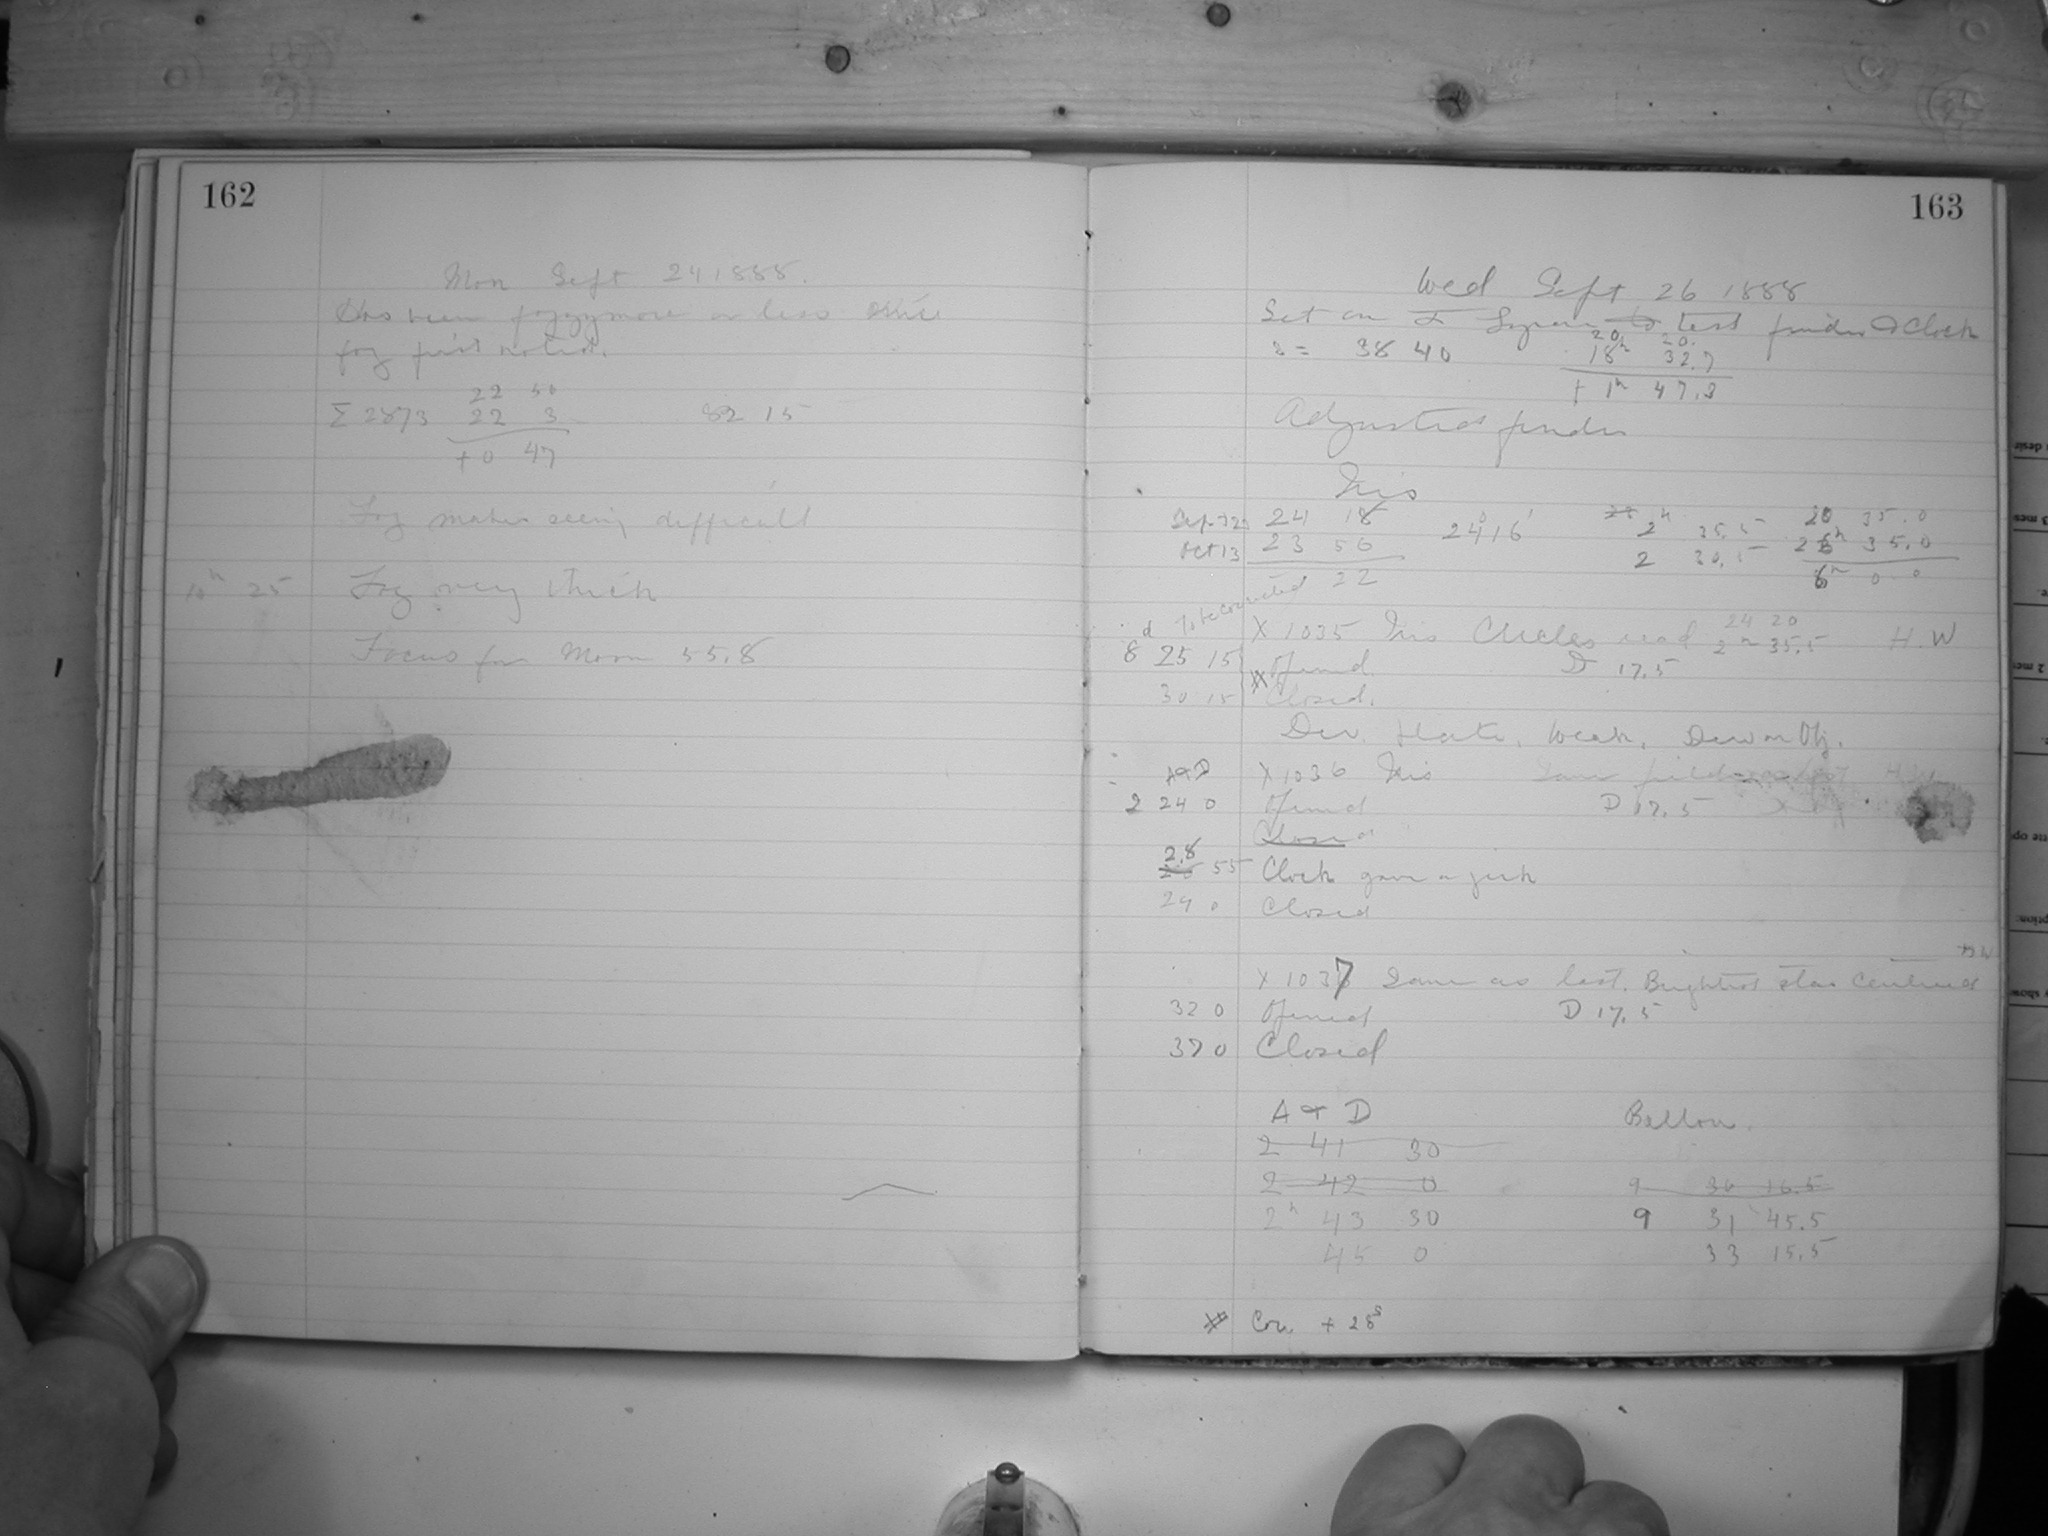 162
Mon Sept 24 1888.
Has been foggy more or less since
fog first noticed.
22 50
Σ 2873 22 3 82 15
+ 0 47
Fog makes seeing difficult
10h 25 Fog very thick
Focus for Moon 55.8
163
Wed Sept 26 1888
Set on α Lyrae to test finder & Clock
20 20.
δ = 38 40 18h 32.7
+ 1h 47.3
Adjusted finder
Iris
Sept 23 24 18 24° 16' 2h 35.5 20 35.0
Oct 13 23 56 2 30.5 2h 35.0
22 6h 0.0
To be corrected
24 20
X 1035 Iris Circles read 2h 35.5 H.W
8 25 15 Opened D 17.5
30 15 Closed.
Dev. Plate. Weak. Dew on Obj.
A & D X 1036 Iris Same field H.W.
2 24 0 Opened D 17.5
Closed
28 55 Clock gave a jerk
29 0 Closed
H W
X 1037 Same as last. Brightest star centered
32 0 Opened D 17.5
37 0 Closed
A & D Bellon.
2 41 30
2 42 0 9 30 16.5
2h 43 30 9 31 45.5
45 0 33 15.5
Cor. + 28s